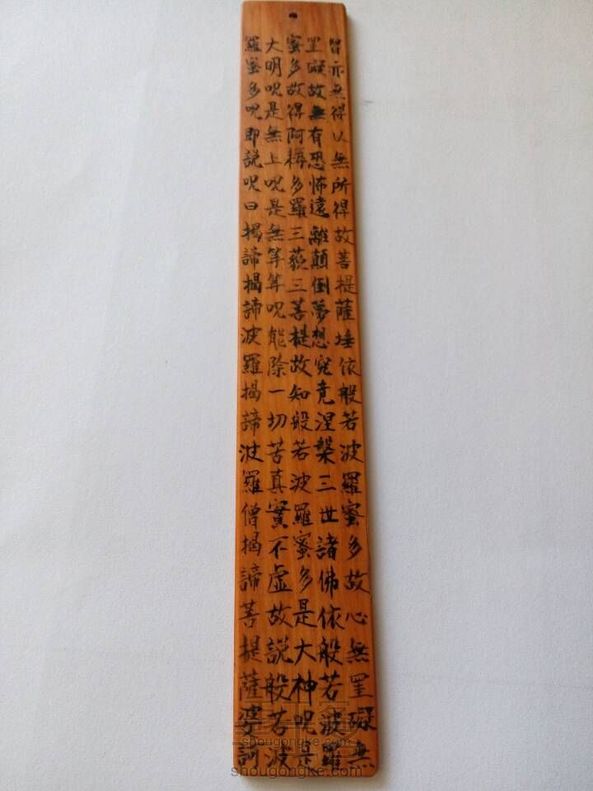 智亦無得以無所得故菩提薩埵依般若波羅蜜多故心無罣礙無
罣礙故無有恐怖遠離顛倒夢想究竟涅槃三世諸佛依般若波羅
蜜多故得阿耨多羅三藐三菩提故知般若波羅蜜多是大神呪是
大明呪是無上呪是無等等呪能除一切苦真實不虛故説般若波
羅蜜多呪即説呪曰揭諦揭諦波羅揭諦波羅僧揭諦菩提薩婆訶
shougongke.com
shougongke.com